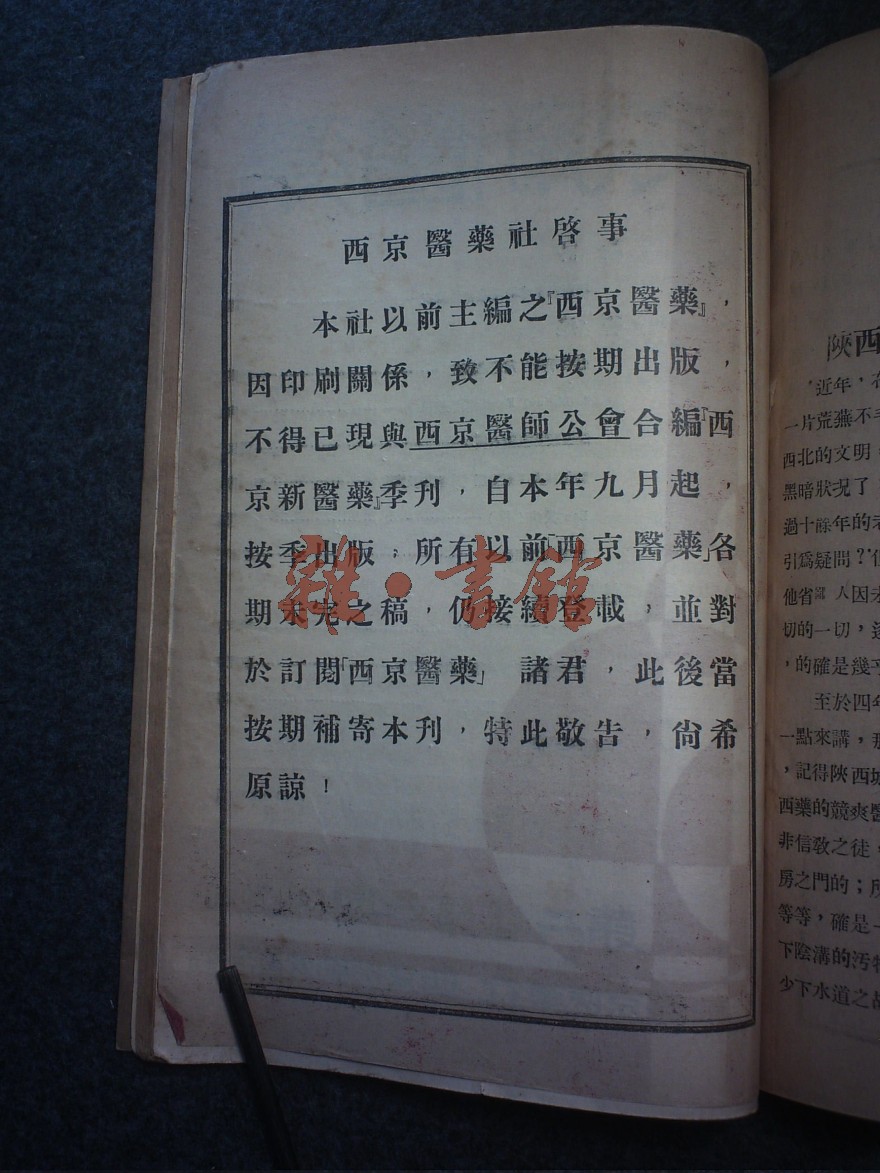 西京醫藥社啓事
本社以前主編之『西京醫藥』，
因印刷關係，致不能按期出版，
不得已現與西京醫師公會合編『西
京新醫藥』季刊，自本年九月起，
按季出版，所有以前「西京醫藥」各
期未完之稿，仍接續登載，並對
於訂閱「西京醫藥」諸君，此後當
按期補寄本刊，特此敬告，尙希
原諒！
雜·書館
陝西
近年，在
一片荒蕪不毛
西北的文明，
黑暗狀況了
過十餘年的老
引爲疑問？但
他省 人因未
切的一切，這
，的確是幾乎
至於四年
一點來講，那
，記得陝西城
西藥的競爽醫
非信敎之徒，
房之門的；所
等等，確是一
下陰溝的汚物
少下水道之故